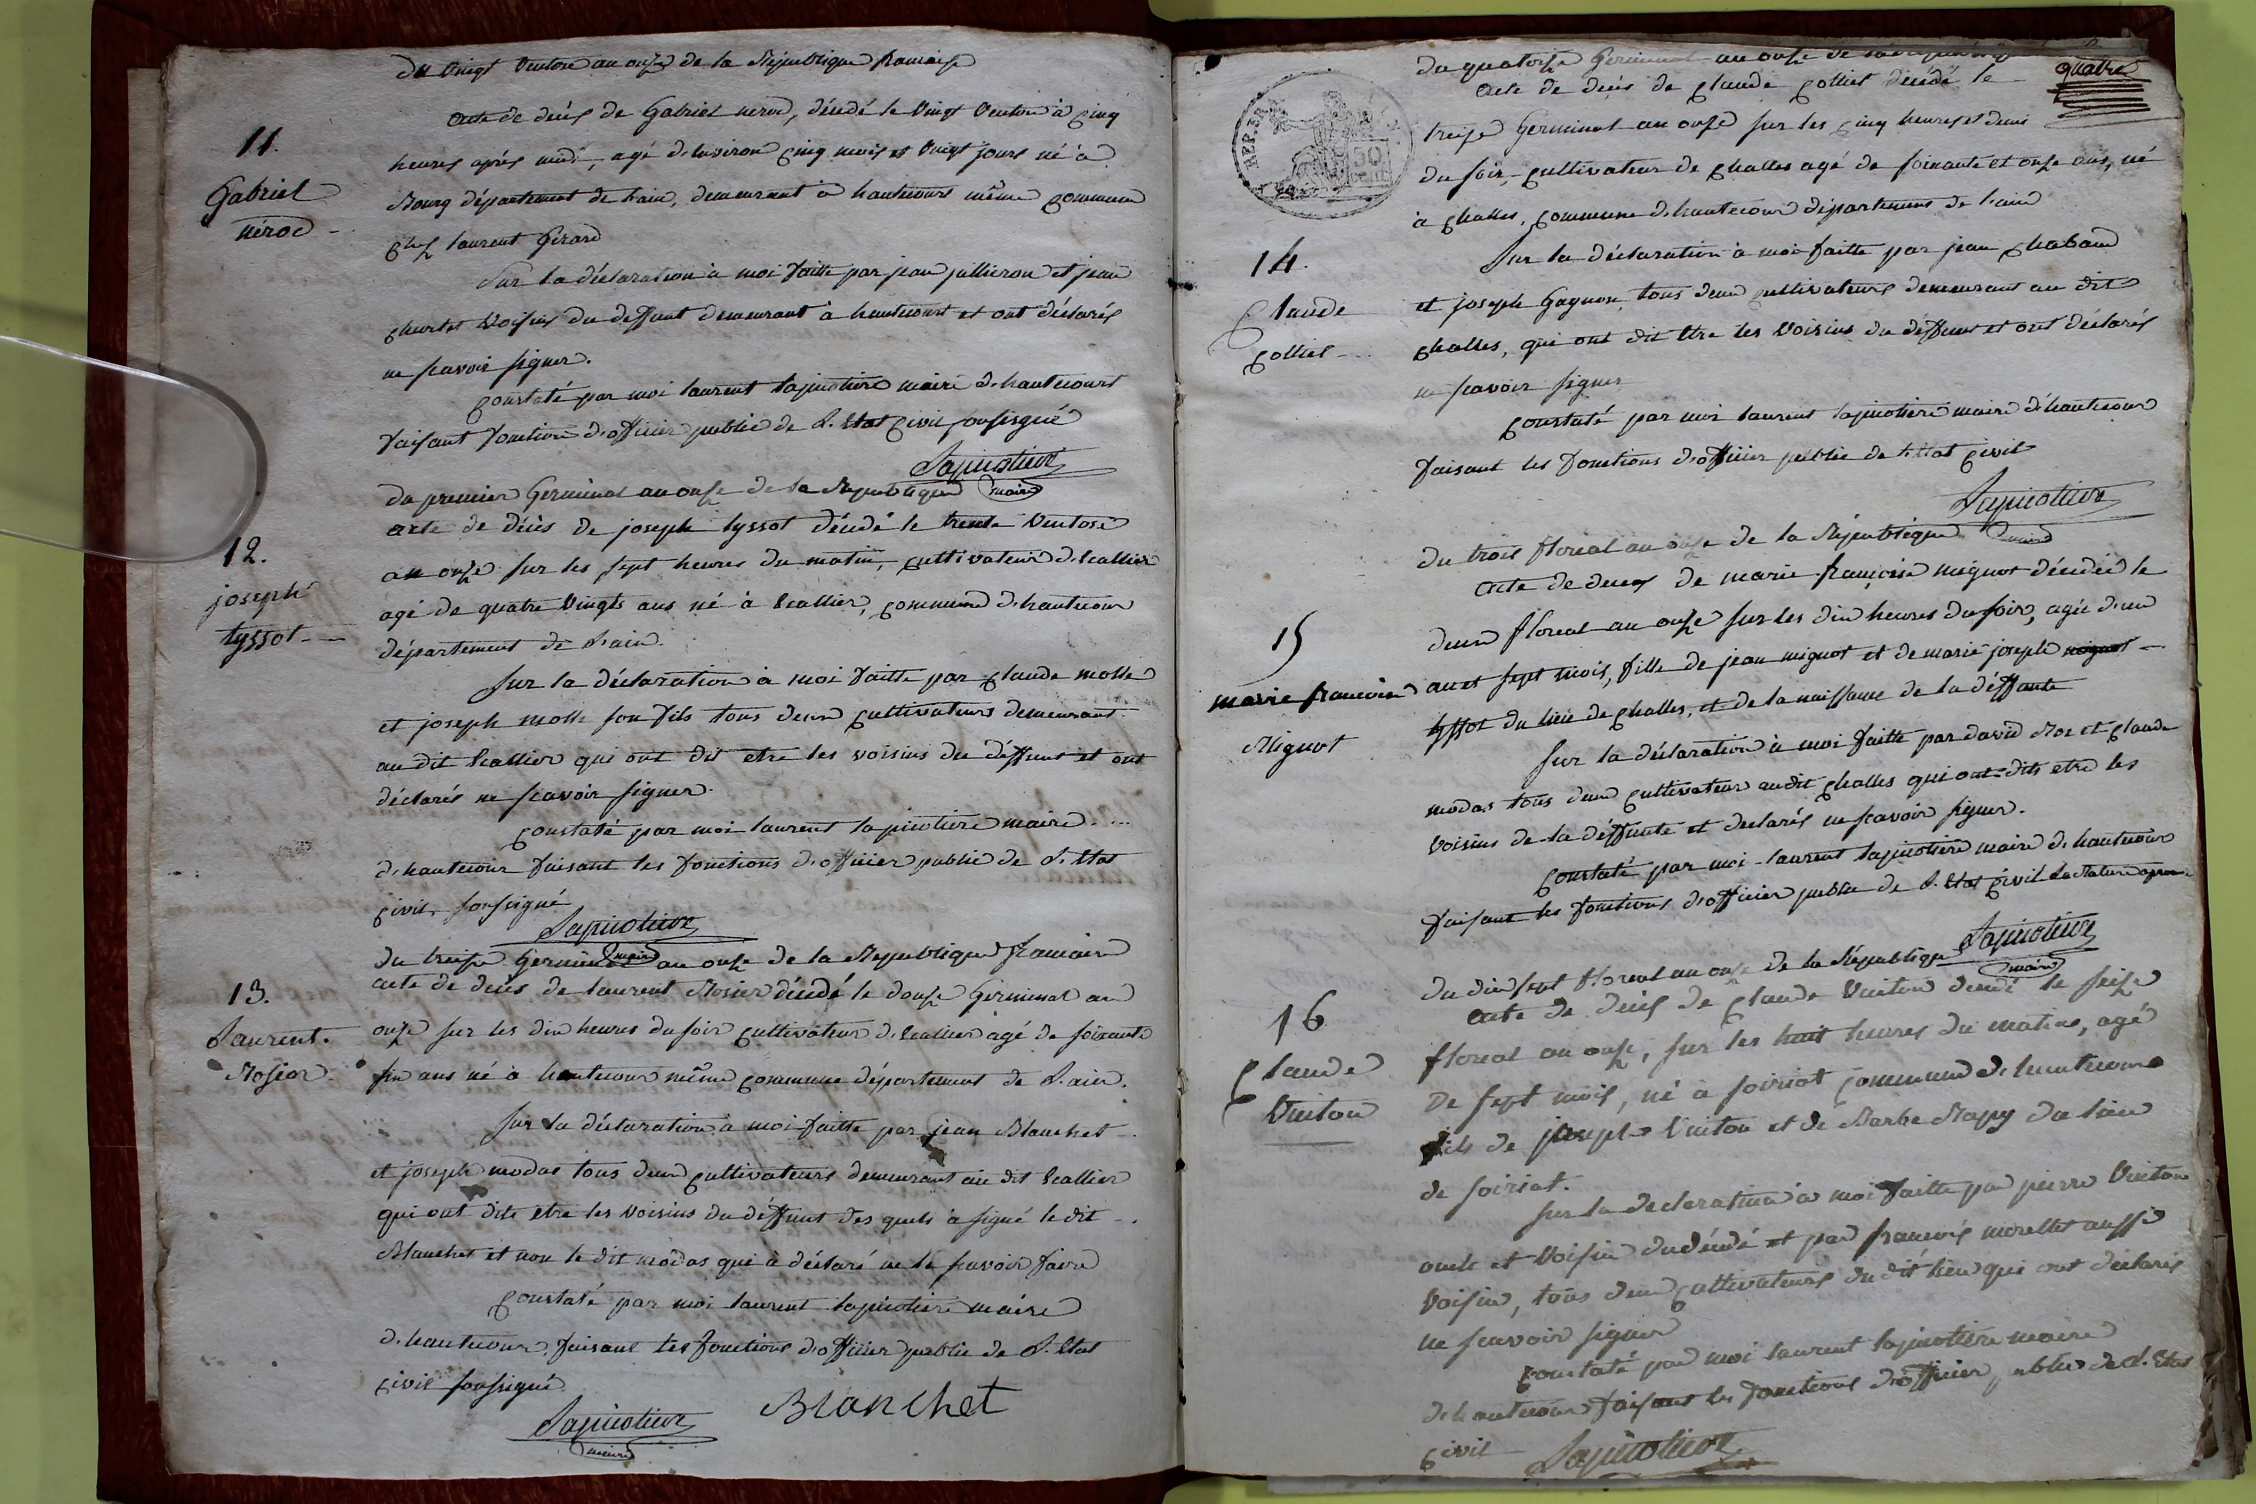 du vingt ventose an onze de la République francaise
11.
Gabriel
nérod
acte de decés de Gabriel nerod, décédé le vingt ventose à cinq
heures aprés midi, agé d'environ cinq mois et vingt jours né à
Bourg département de l'ain, demeurant à hautecourt même commune
chez laurent Girard
Sur la déclaration à moi faitte par jean jullieron et jean
voisins du deffunt demeurant à hautecourt et ont déclarés
ne scavoir signer.
constaté par moi laurent lapicotiere maire d'hautecourt
faisant fonction d'officier public de l'Etat civil soussigné
Lapicotiere
maire
du premier Germinal an onze de la République
12.
joseph
tyssot
acte de décès de joseph tyssot décédé le trente ventose
an onze sur les sept heures du matin, cultivateur d'Eallier
agé de quatre vingts ans né à Eallier, commune d'hautecour
département de l'ain.
Sur la déclaration à moi faitte par claude molle
et joseph molle son fils tous deux cultivateurs demeurant
au dit Eallier qui ont dit etre les voisins du deffunt et ont
déclarés ne scavoir signer.
constaté par moi laurent lapicotiere maire
d'hautecour faisant les fonctions d'officier public de l'Etat
civil soussigné
Lapicotiere
maire
du treize Germinal an onze de la République francaise
13.
Laurent
Rosier
acte de decés de laurent Rosier décédé le douze Germinal an
onze sur les dix heures du soir cultivateur d'Eallier agé de soixante
six ans né à hautecour même commune département de l'ain.
Sur la déclaration à moi faitte par jean Blanchet
et joseph modas tous deux cultivateurs demeurant au dit Eallier
qui ont dits etre les voisins du déffunt des quels à signé le dit
Blanchet et non le dit modas qui à déclaré ne le scavoir faire
constaté par moi laurent lapicotiere maire
d'hautecour, faisant les fonctions d'officier public de l'Etat
civil soussigné
Lapicotiere
maire
Blanchet
quatre
REP. FRA.
50
CENT.
du quatorze Germinal an onze de la République
14.
Claude
collet
acte de decés de claude collet décédé le
treize Germinal an onze sur les cinq heures et demi
du soir, cultivateur de challes agé de soixante et onze ans, né
à challes, commune d'hautecour département de l'ain
Sur la déclaration à moi faitte par jean chaband
et joseph Gagnon tous deux cultivateurs demeurant au dit
challes, qui ont dit etre les voisins du déffunt et ont déclarés
ne scavoir signer
constaté par moi laurent lapicotiere maire d'hautecour
faisant les fonctions d'officier public de l'Etat civil
Lapicotiere
maire
du trois floréal an onze de la République
15
marie francoise
Mignot
acte de deces de marie françoise mignot décédée le
deux floreal an onze sur les dix heures du soir, agée d'un
an et sept mois, fille de jean mignot et de marie joseph mignot
tyssot du lieu de challes, et de la naissance de la déffunte
sur la déclaration à moi faitte par david Roz et claude
modas tous deux cultivateur au dit challes qui ont dits etre les
voisins de la déffunte et declarés ne scavoir signer.
constaté par moi laurent lapicotiere maire d'hautecour
faisant les fonctions d'officier public de l'Etat civil
Lapicotiere
maire
du dix sept floreal an onze de la République
16
Claude
Vuiton
acte de decés de Claude Vuiton décédé le seize
floreal an onze, sur les huit heures du matin, agé
de sept mois, né à soiriat commune d'hautecour
fils de joseph Vuiton et de Barbe Rapy du lieu
de soiriat.
sur la declaration à moi faitte par pierre Vuiton
oncle et voisin du décédé et par francois morellet aussi
voisin, tous deux cultivateurs du dit lieu qui ont déclarés
ne scavoir signer
constaté par moi laurent lapicotiere maire
d'hautecour faisant les fonctions d'officier public de l'Etat
civil
Lapicotiere